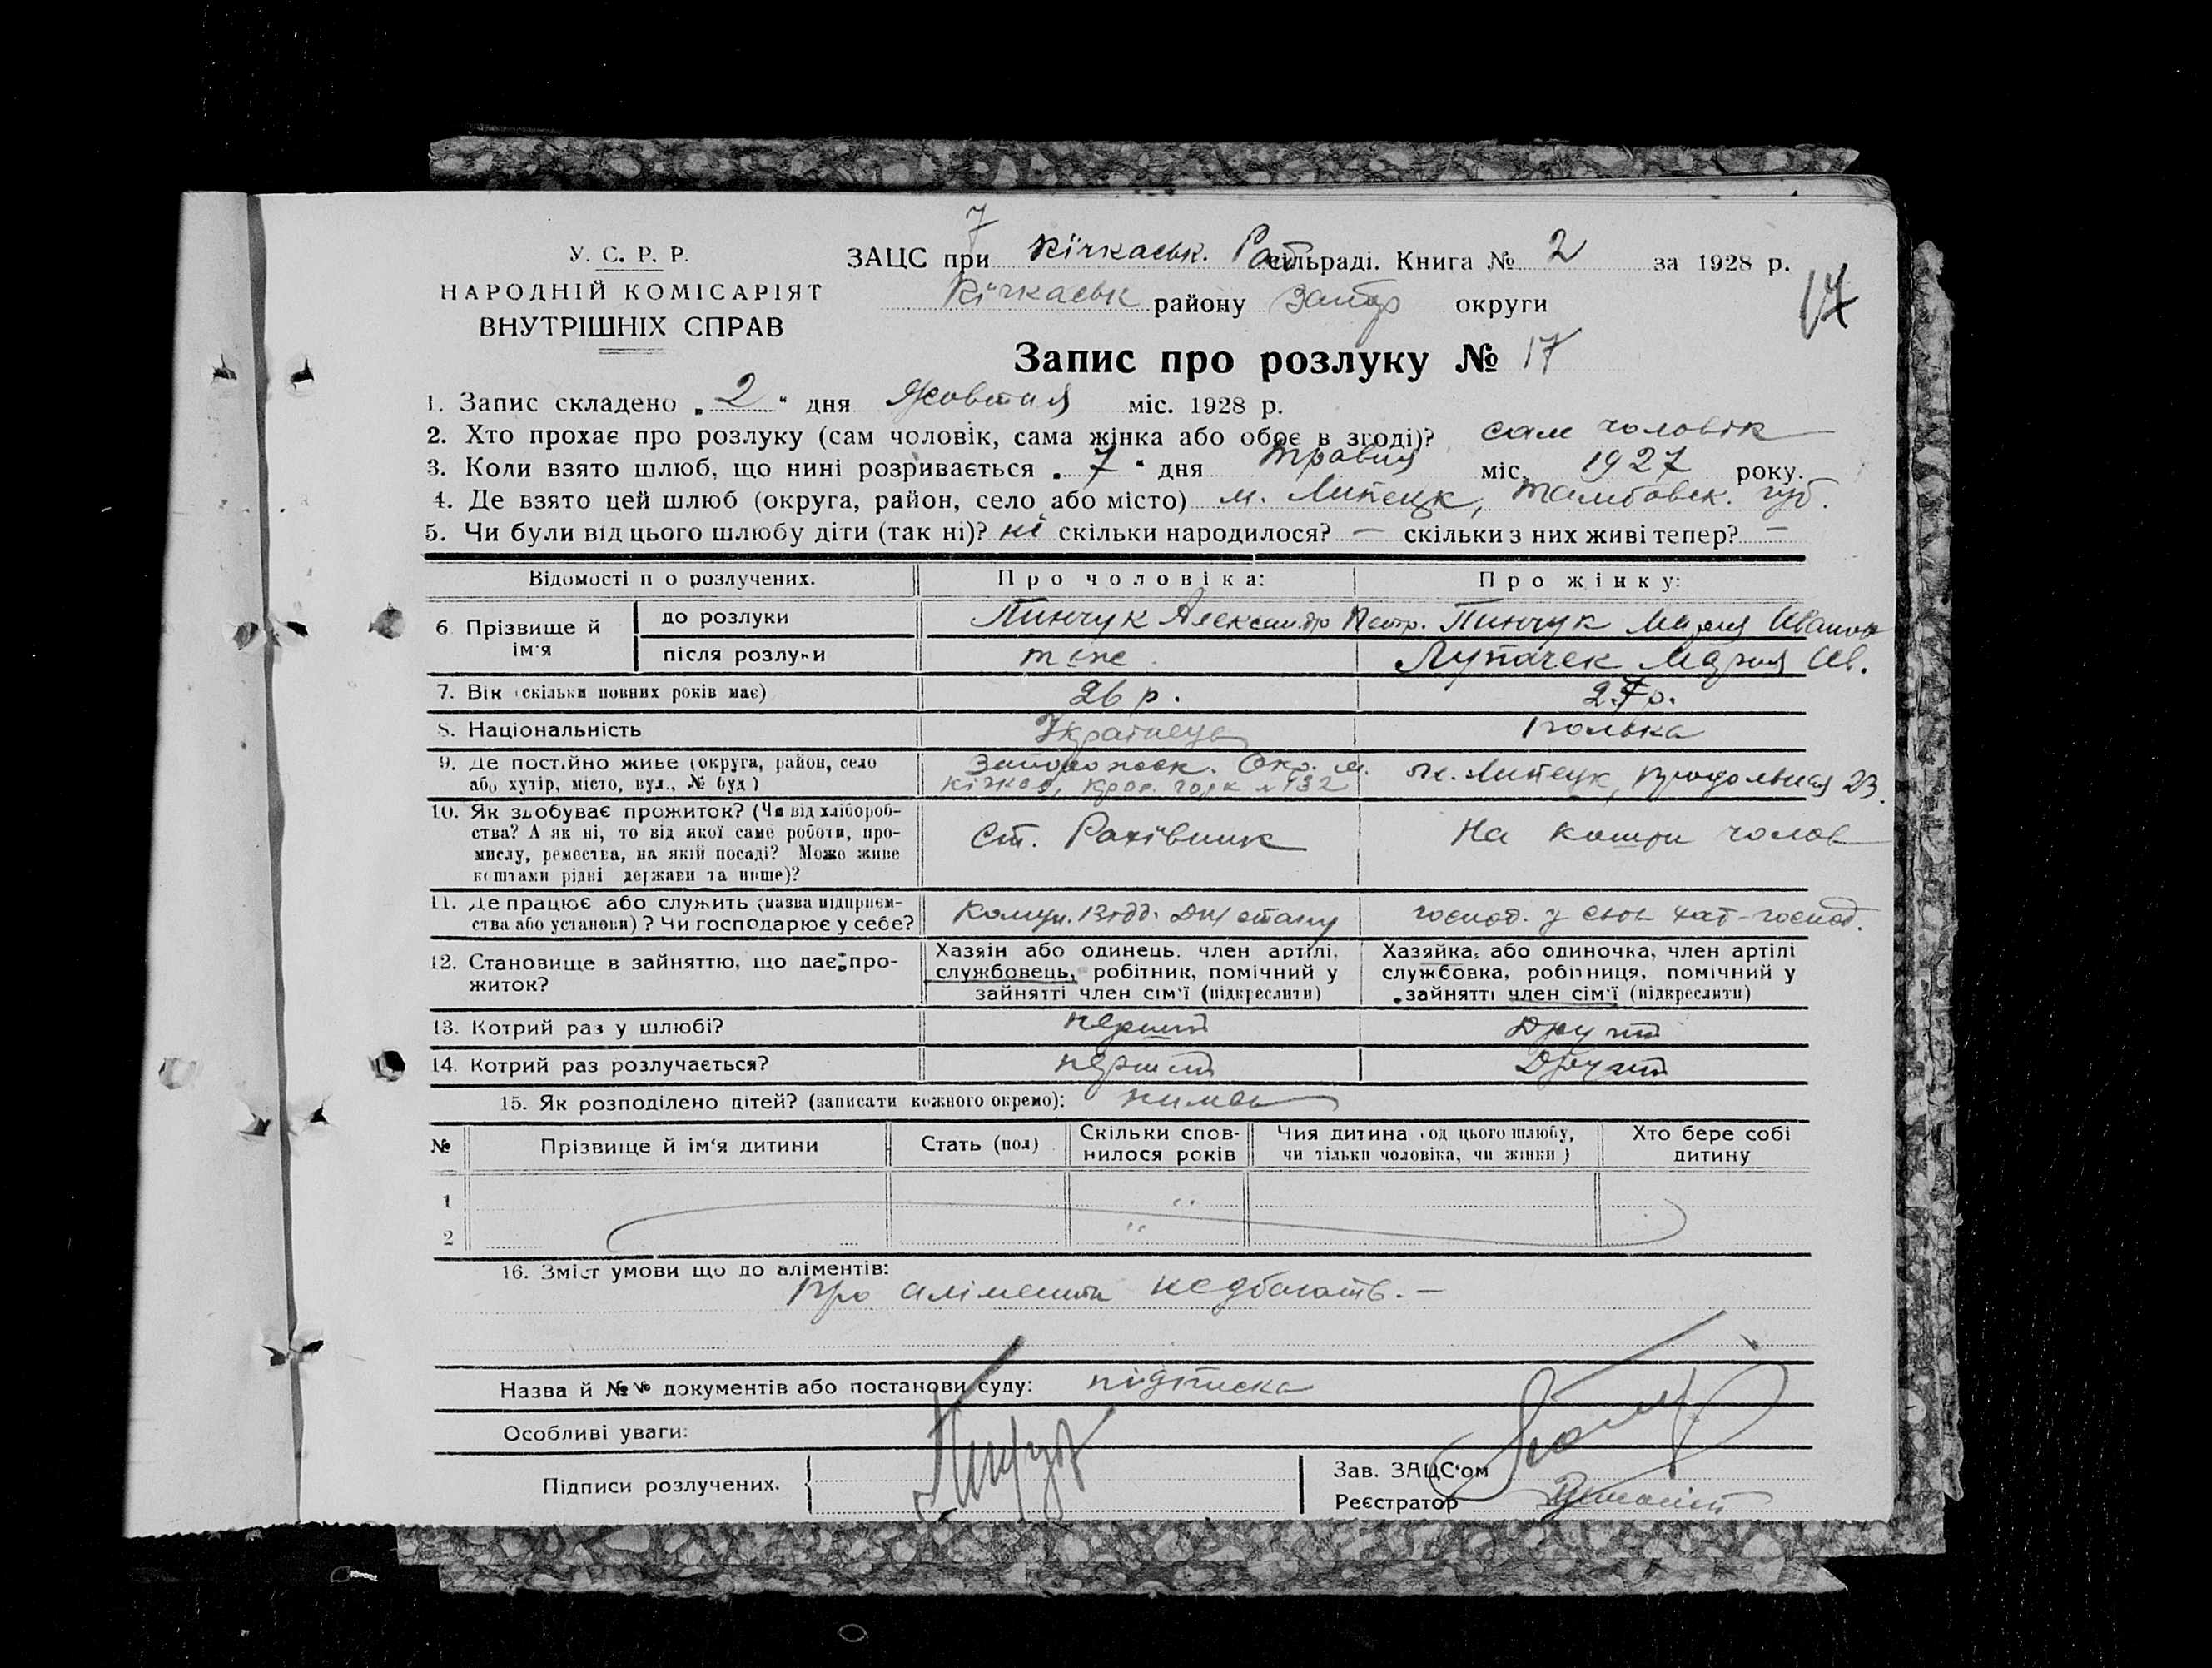 7
У. С. Р. Р.
НАРОДНІЙ КОМІСАРІЯТ
ВНУТРІШНІХ СПРАВ
ЗАЦС при Кічкаськ. Рай сільраді. Книга № 2 за 1928 р.
Кічкаськ району Запор округи
17
Запис про розлуку № 17
1. Запис складено „2“ дня Жовтня міс. 1928 р.
2. Хто прохає про розлуку (сам чоловік, сама жінка або обоє в згоді)? сам чоловік
3. Коли взято шлюб, що нині розривається „7“ дня травня міс. 1927 року.
4. Де взято цей шлюб (округа, район, село або місто) м. Липецк, Тамбовск. губ.
5. Чи були від цього шлюбу діти (так ні)? ні скільки народилося? — скільки з них живі тепер? —
Відомості по розлучених. Про чоловіка: Про жінку:
6 Прізвище й ім'я до розлуки Пинчук Александр Петр. Пинчук Мария Иванов
після розлуки теж Лупачек Мария Ив.
7. Вік (скільки повних років має) 26 р. 27 р.
8. Національність Українець Полька
9. Де постійно живе (округа, район, село Запорожск. Окр. м. м. Липецк, Продольная 23.
або хутір, місто, вул., № буд) Кічкас, № 132
10. Як здобуває прожиток? (Чи від хлібороб-
ства? А як ні, то від якої саме роботи, про- Ст. Рахівник На кошти чолов
мислу, ремества, на якій посаді? Може живе
коштами рідні держави та инше)?
11. Де працює або служить (назва підприєм- Комун. господ.
ства або установи)? Чи господарює у себе?
12. Становище в зайняттю, що дає про-
житок?
Хазяїн або одинець. член артілі,
службовець, робітник, помічний у
зайнятті член сім'ї (підкреслити)
Хазяйка, або одиночка, член артілі
службовка, робітниця, помічний у
зайнятті член сім'ї (підкреслити)
13. Котрий раз у шлюбі? перший Другий
14. Котрий раз розлучається? перший Другий
15. Як розподілено дітей? (записати кожного окремо): немає
№ Прізвище й ім'я дитини Стать (пол) Скільки спов-нилося років Чия дитина (од цього шлюбу, чи тільки чоловіка, чи жінки) Хто бере собі дитину
1
2
16. Зміст умови що до аліментів:
Про аліменти не дбають. —
Назва й №№ документів або постанови суду: підписка
Особливі уваги:
Підписи розлучених. Пинчук
Зав. ЗАЦС'ом
Реєстратор